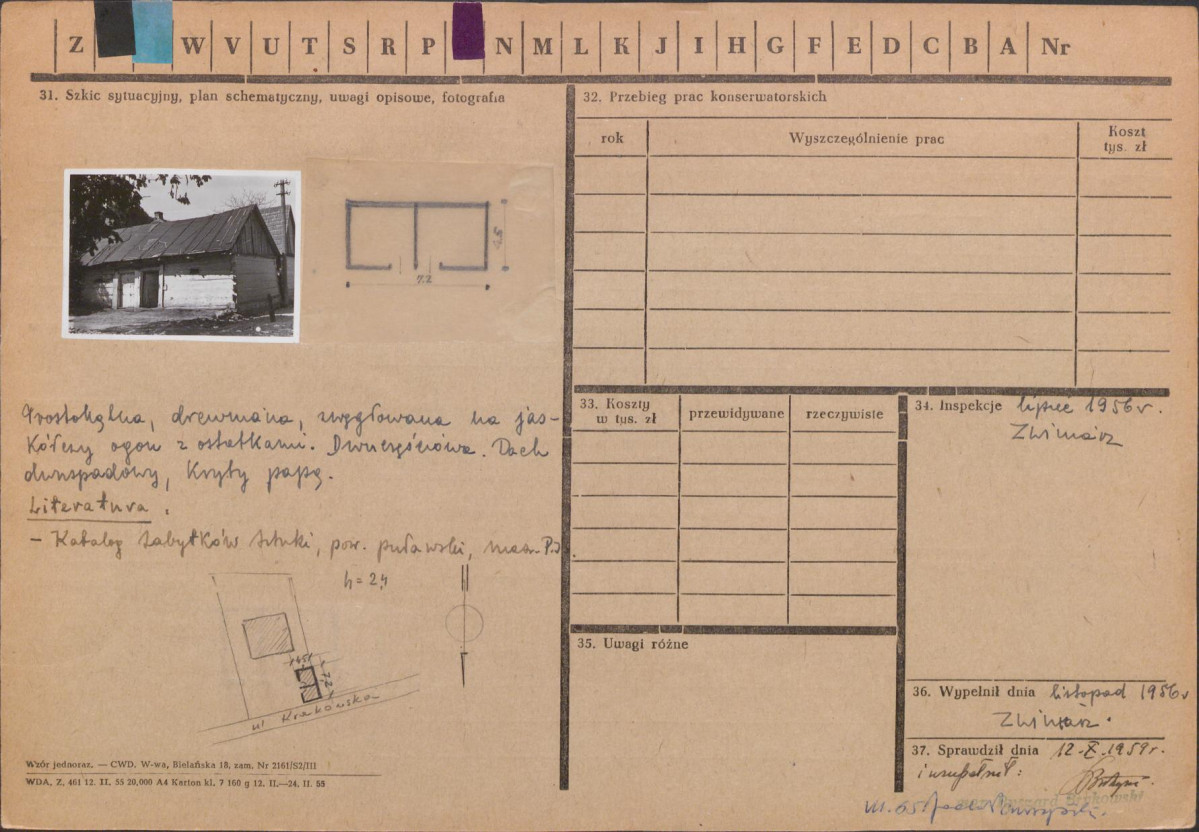 Z W V U T S R P N M L K J I H G F E D C B A Nr
31. Szkic sytuacyjny, plan schematyczny, uwagi opisowe, fotografia
4.5
7.2
Prostokątna, drewniana, zwęgłowana na jas-
kółczy ogon z ostatkami. Dwuczęściowa. Dach
dwuspadowy, kryty papą.
Literatura.
- Katalog zabytków sztuki, pow. puławski, masz. P.I.S.
h = 2,4
4.5
7.2
ul. Krakowska
Wzór jednoraz. — CWD. W-wa, Bielańska 18, zam. Nr 2161/S2/III
WDA. Z. 461 12. II. 55 20.000 A4 Karton kl. 7 160 g 12. II.—24. II. 55
32. Przebieg prac konserwatorskich
rok Wyszczególnienie prac Koszt
tys. zł
33. Koszty
w tys. zł przewidywane rzeczywiste
34. Inspekcje lipiec 1956 r.
35. Uwagi różne
36. Wypełnił dnia listopad 1956 r
37. Sprawdził dnia 12.X.1959 r.
i uzupełnił: